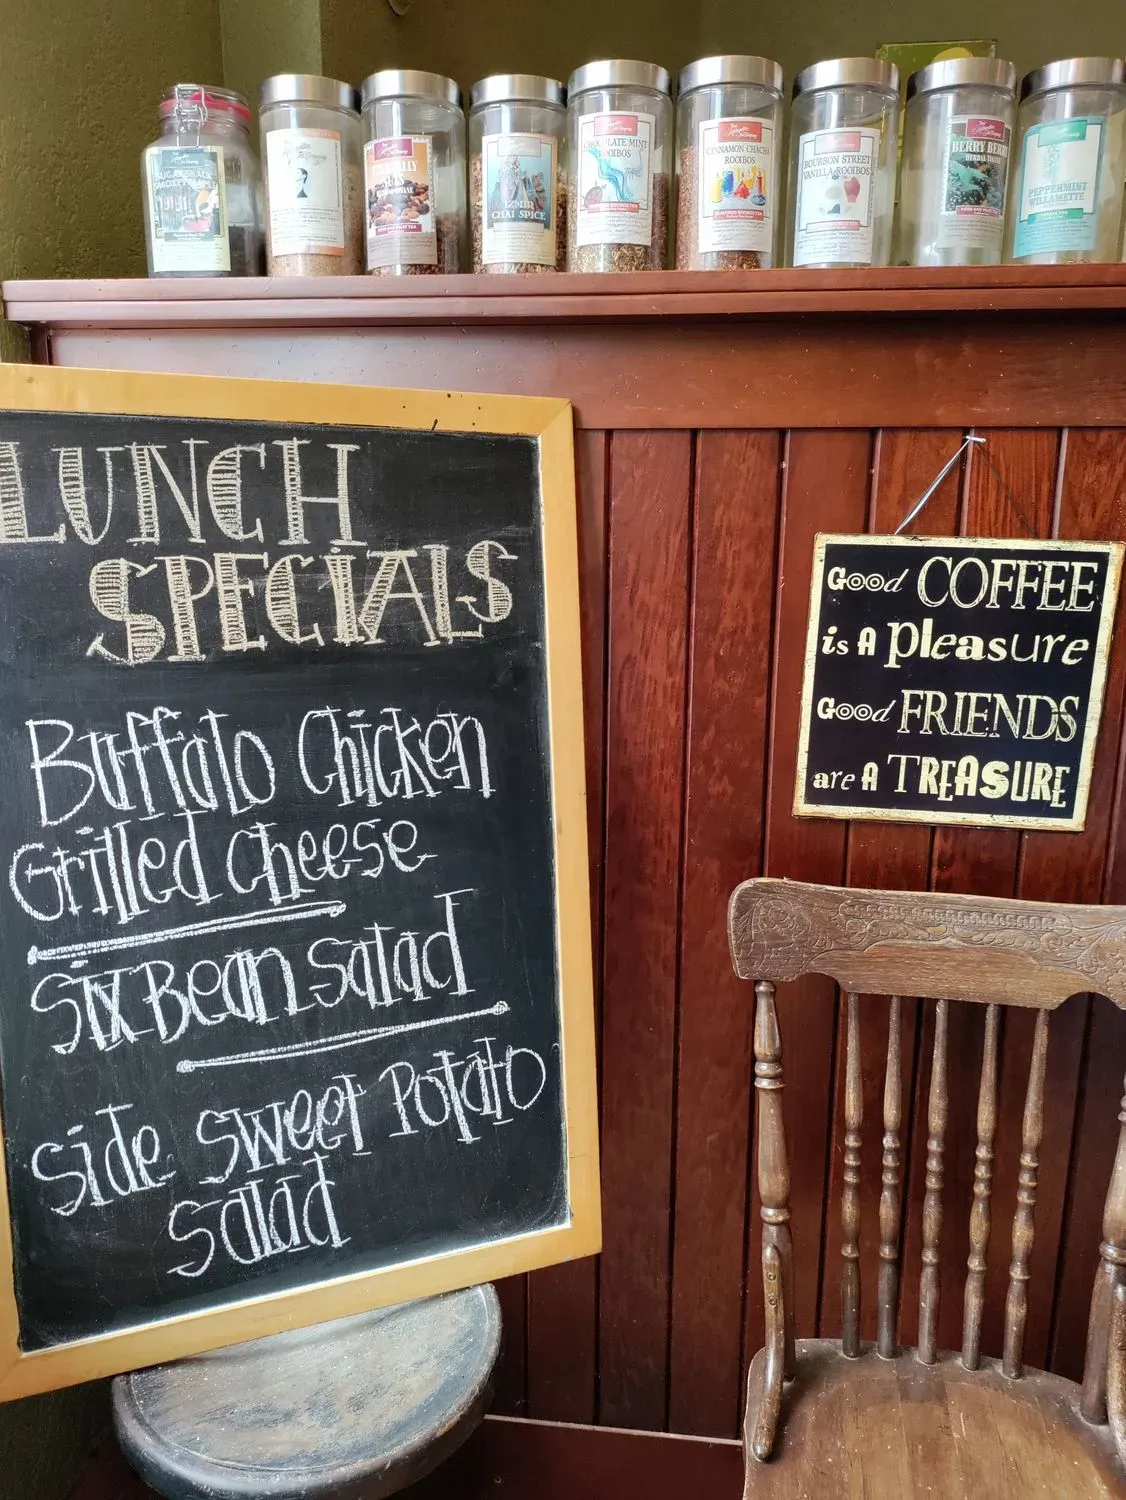 SUGAR SHACK
SMOKEY MAPLE
IZMIR
CHAI SPICE
CHOCOLATE MINT
ROOIBOS
CINNAMON CHACHA
ROOIBOS
FLAVORED ROOIBOS TEA
BOURBON STREET
VANILLA ROOIBOS
BERRY BERRY
HERBAL TISANE
PEPPERMINT
WILLAMETTE
LUNCH
SPECIALS
Buffalo Chicken
Grilled cheese
Six Bean salad
side sweet Potato
salad
Good COFFEE
is A pleasure
Good FRIENDS
are A TREASURE